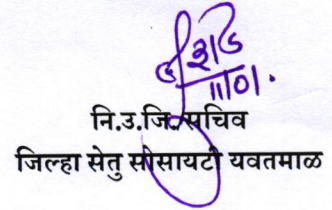 11/01.
नि.उ.जि./सचिव
जिल्हा सेतु सोसायटी यवतमाळ